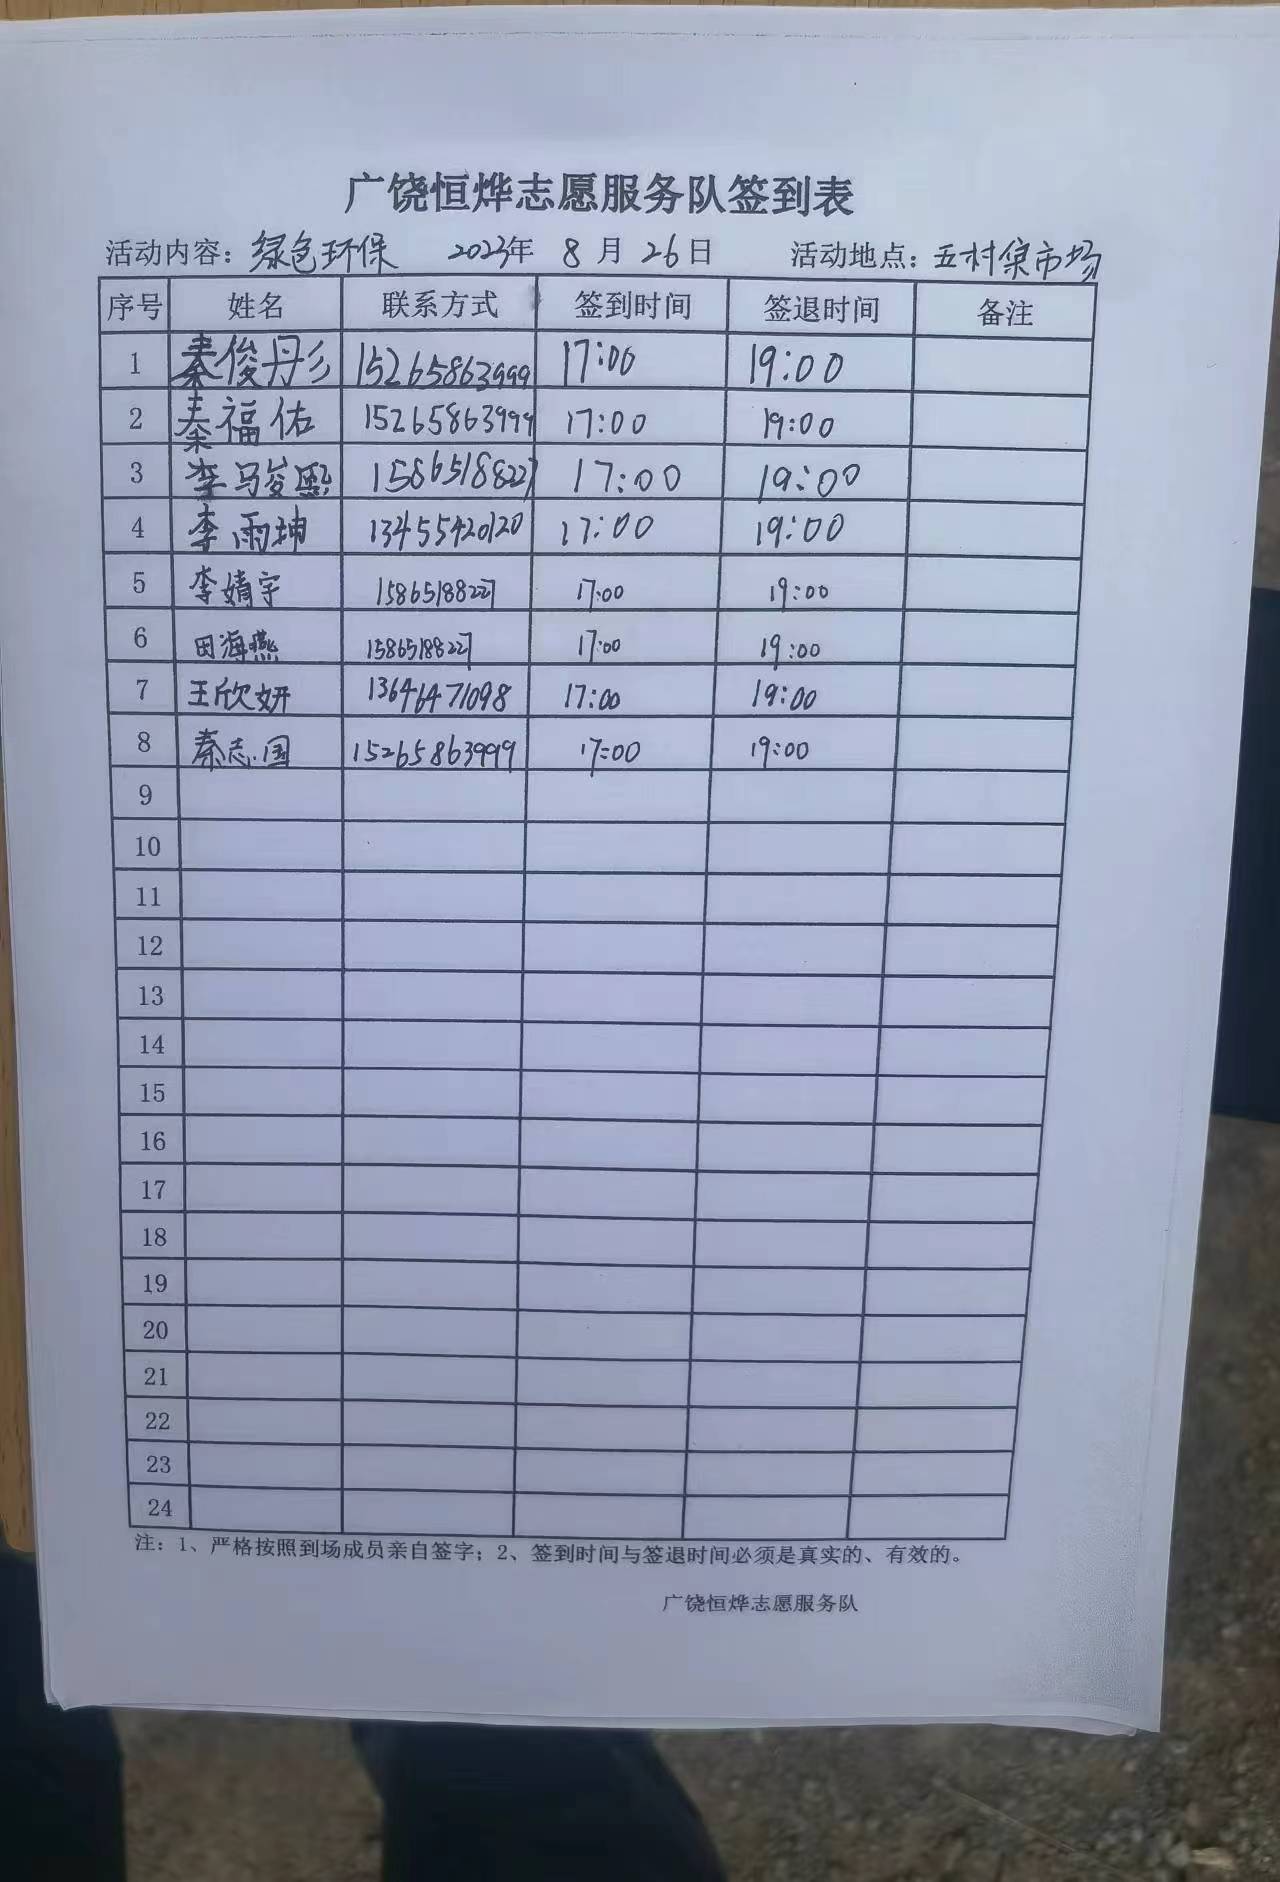 广饶恒烨志愿服务队签到表
活动内容：绿色环保 2023年 8 月 26日 活动地点：五村集市场
序号 姓名 联系方式 签到时间 签退时间 备注
1 秦俊彤 15265863999 17:00 19:00
2 秦福佑 15265863999 17:00 19:00
3 李 15865188227 17:00 19:00
4 李雨坤 13455420120 17:00 19:00
5 李婧宇 15865188227 17:00 19:00
6 田海燕 15865188227 17:00 19:00
7 王欣妍 13646471098 17:00 19:00
8 秦志国 15265863999 17:00 19:00
9
10
11
12
13
14
15
16
17
18
19
20
21
22
23
24
注：1、严格按照到场成员亲自签字；2、签到时间与签退时间必须是真实的、有效的。
广饶恒烨志愿服务队